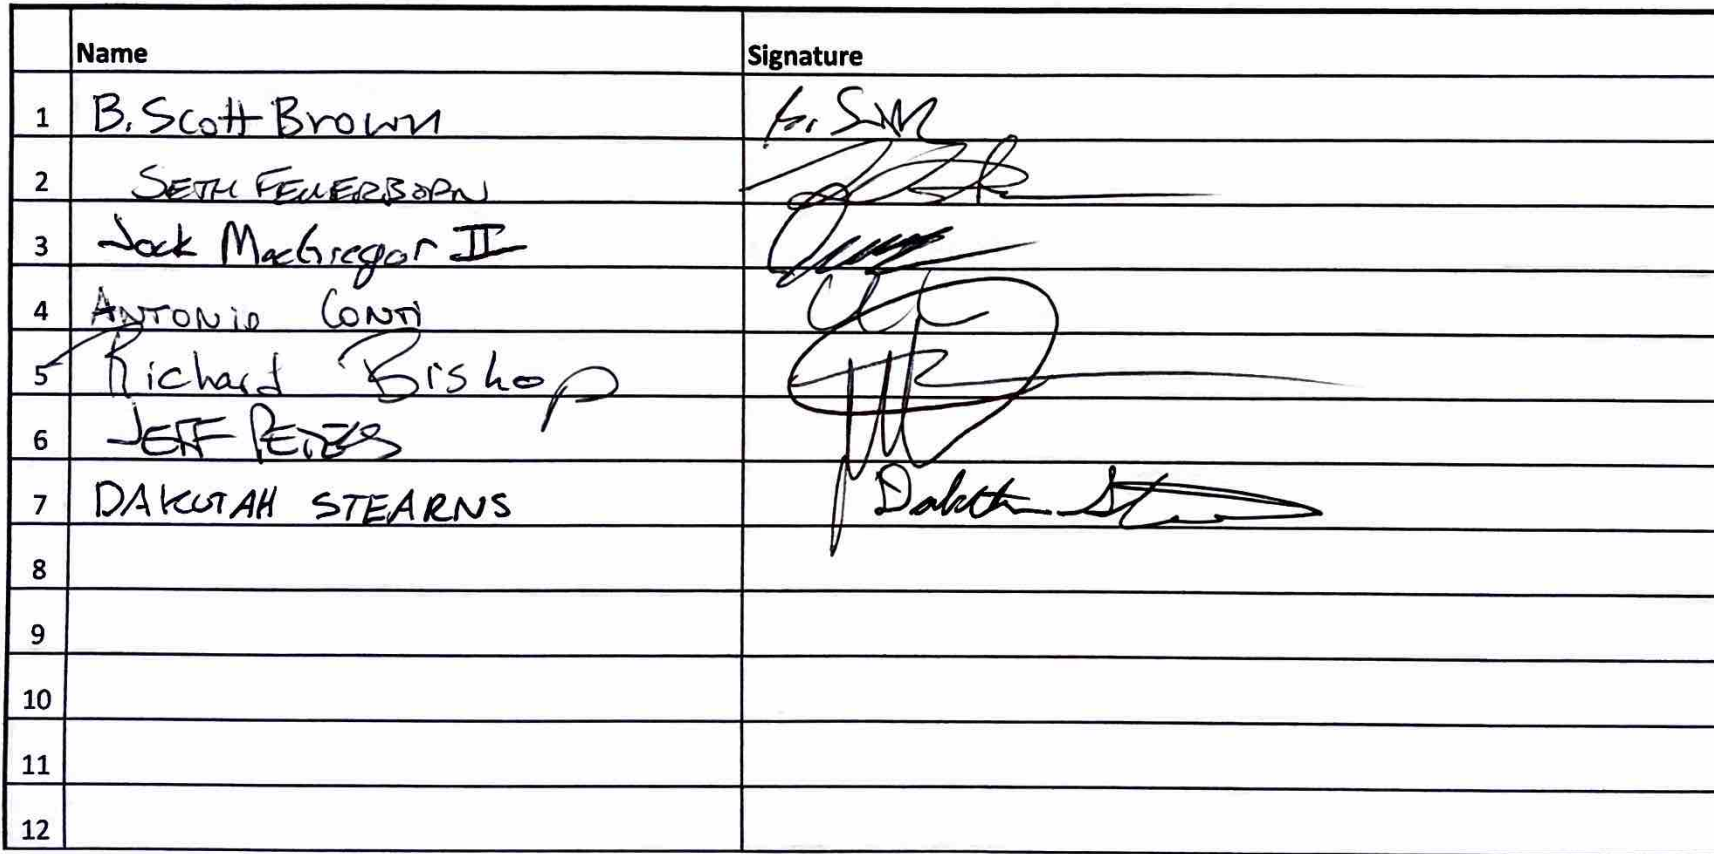 Name Signature
1 B. Scott Brown
2 SETH FEUERBORN
3 Jock MacGregor II
4 ANTONIO CONTI
5 Richard Bishop
6 JEFF PETERS
7 DAKOTAH STEARNS
8
9
10
11
12